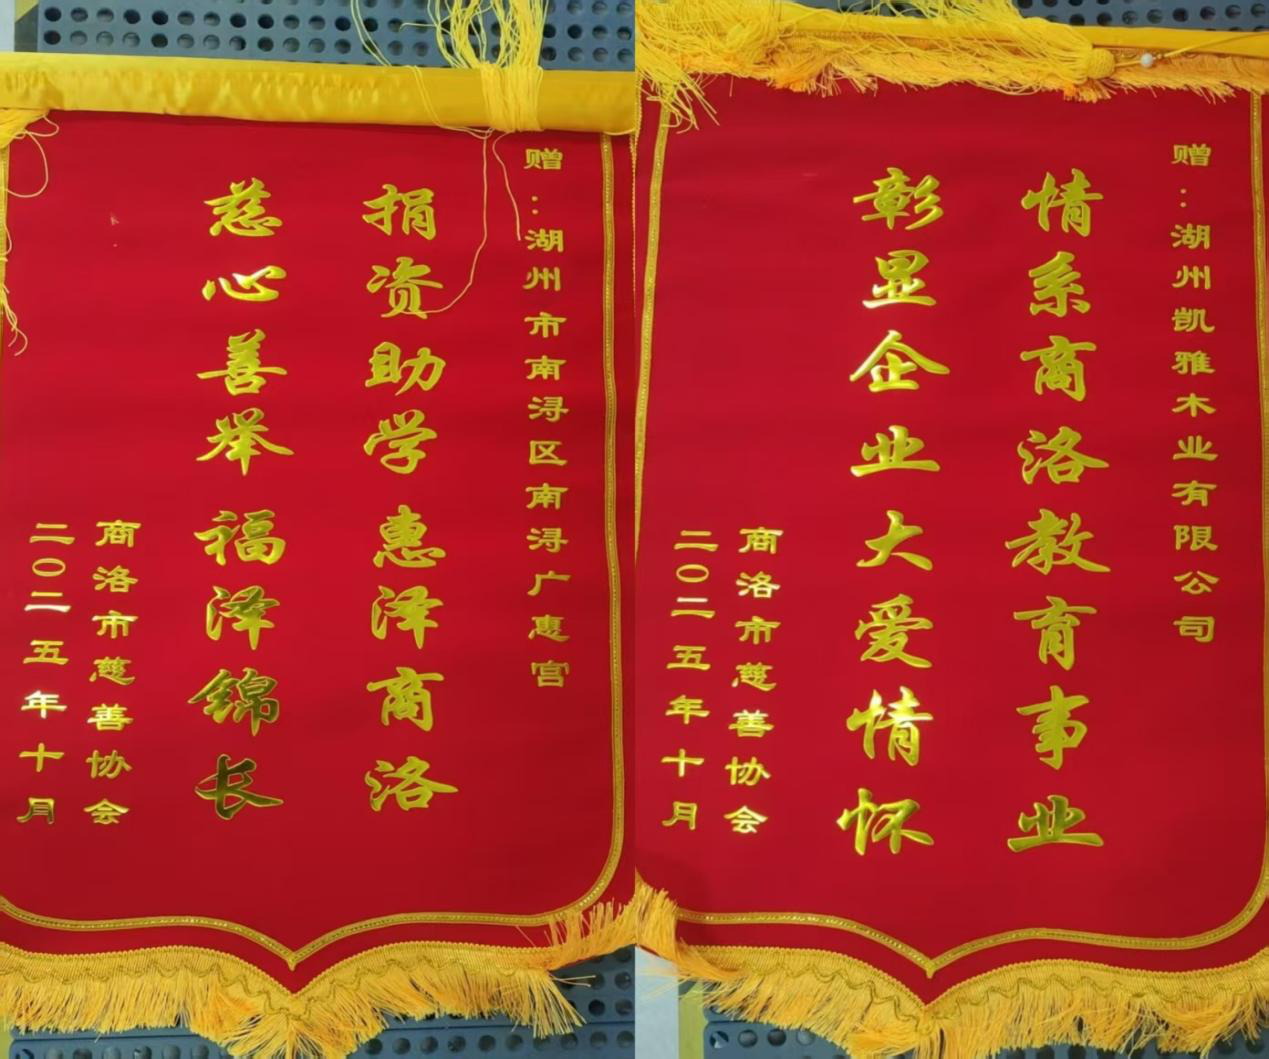 赠:湖州市南浔区南浔广惠宫
捐资助学惠泽商洛
慈心善举福泽锦长
商洛市慈善协会
二〇二五年十月
赠:湖州凯雅木业有限公司
情系商洛教育事业
彰显企业大爱情怀
商洛市慈善协会
二〇二五年十月